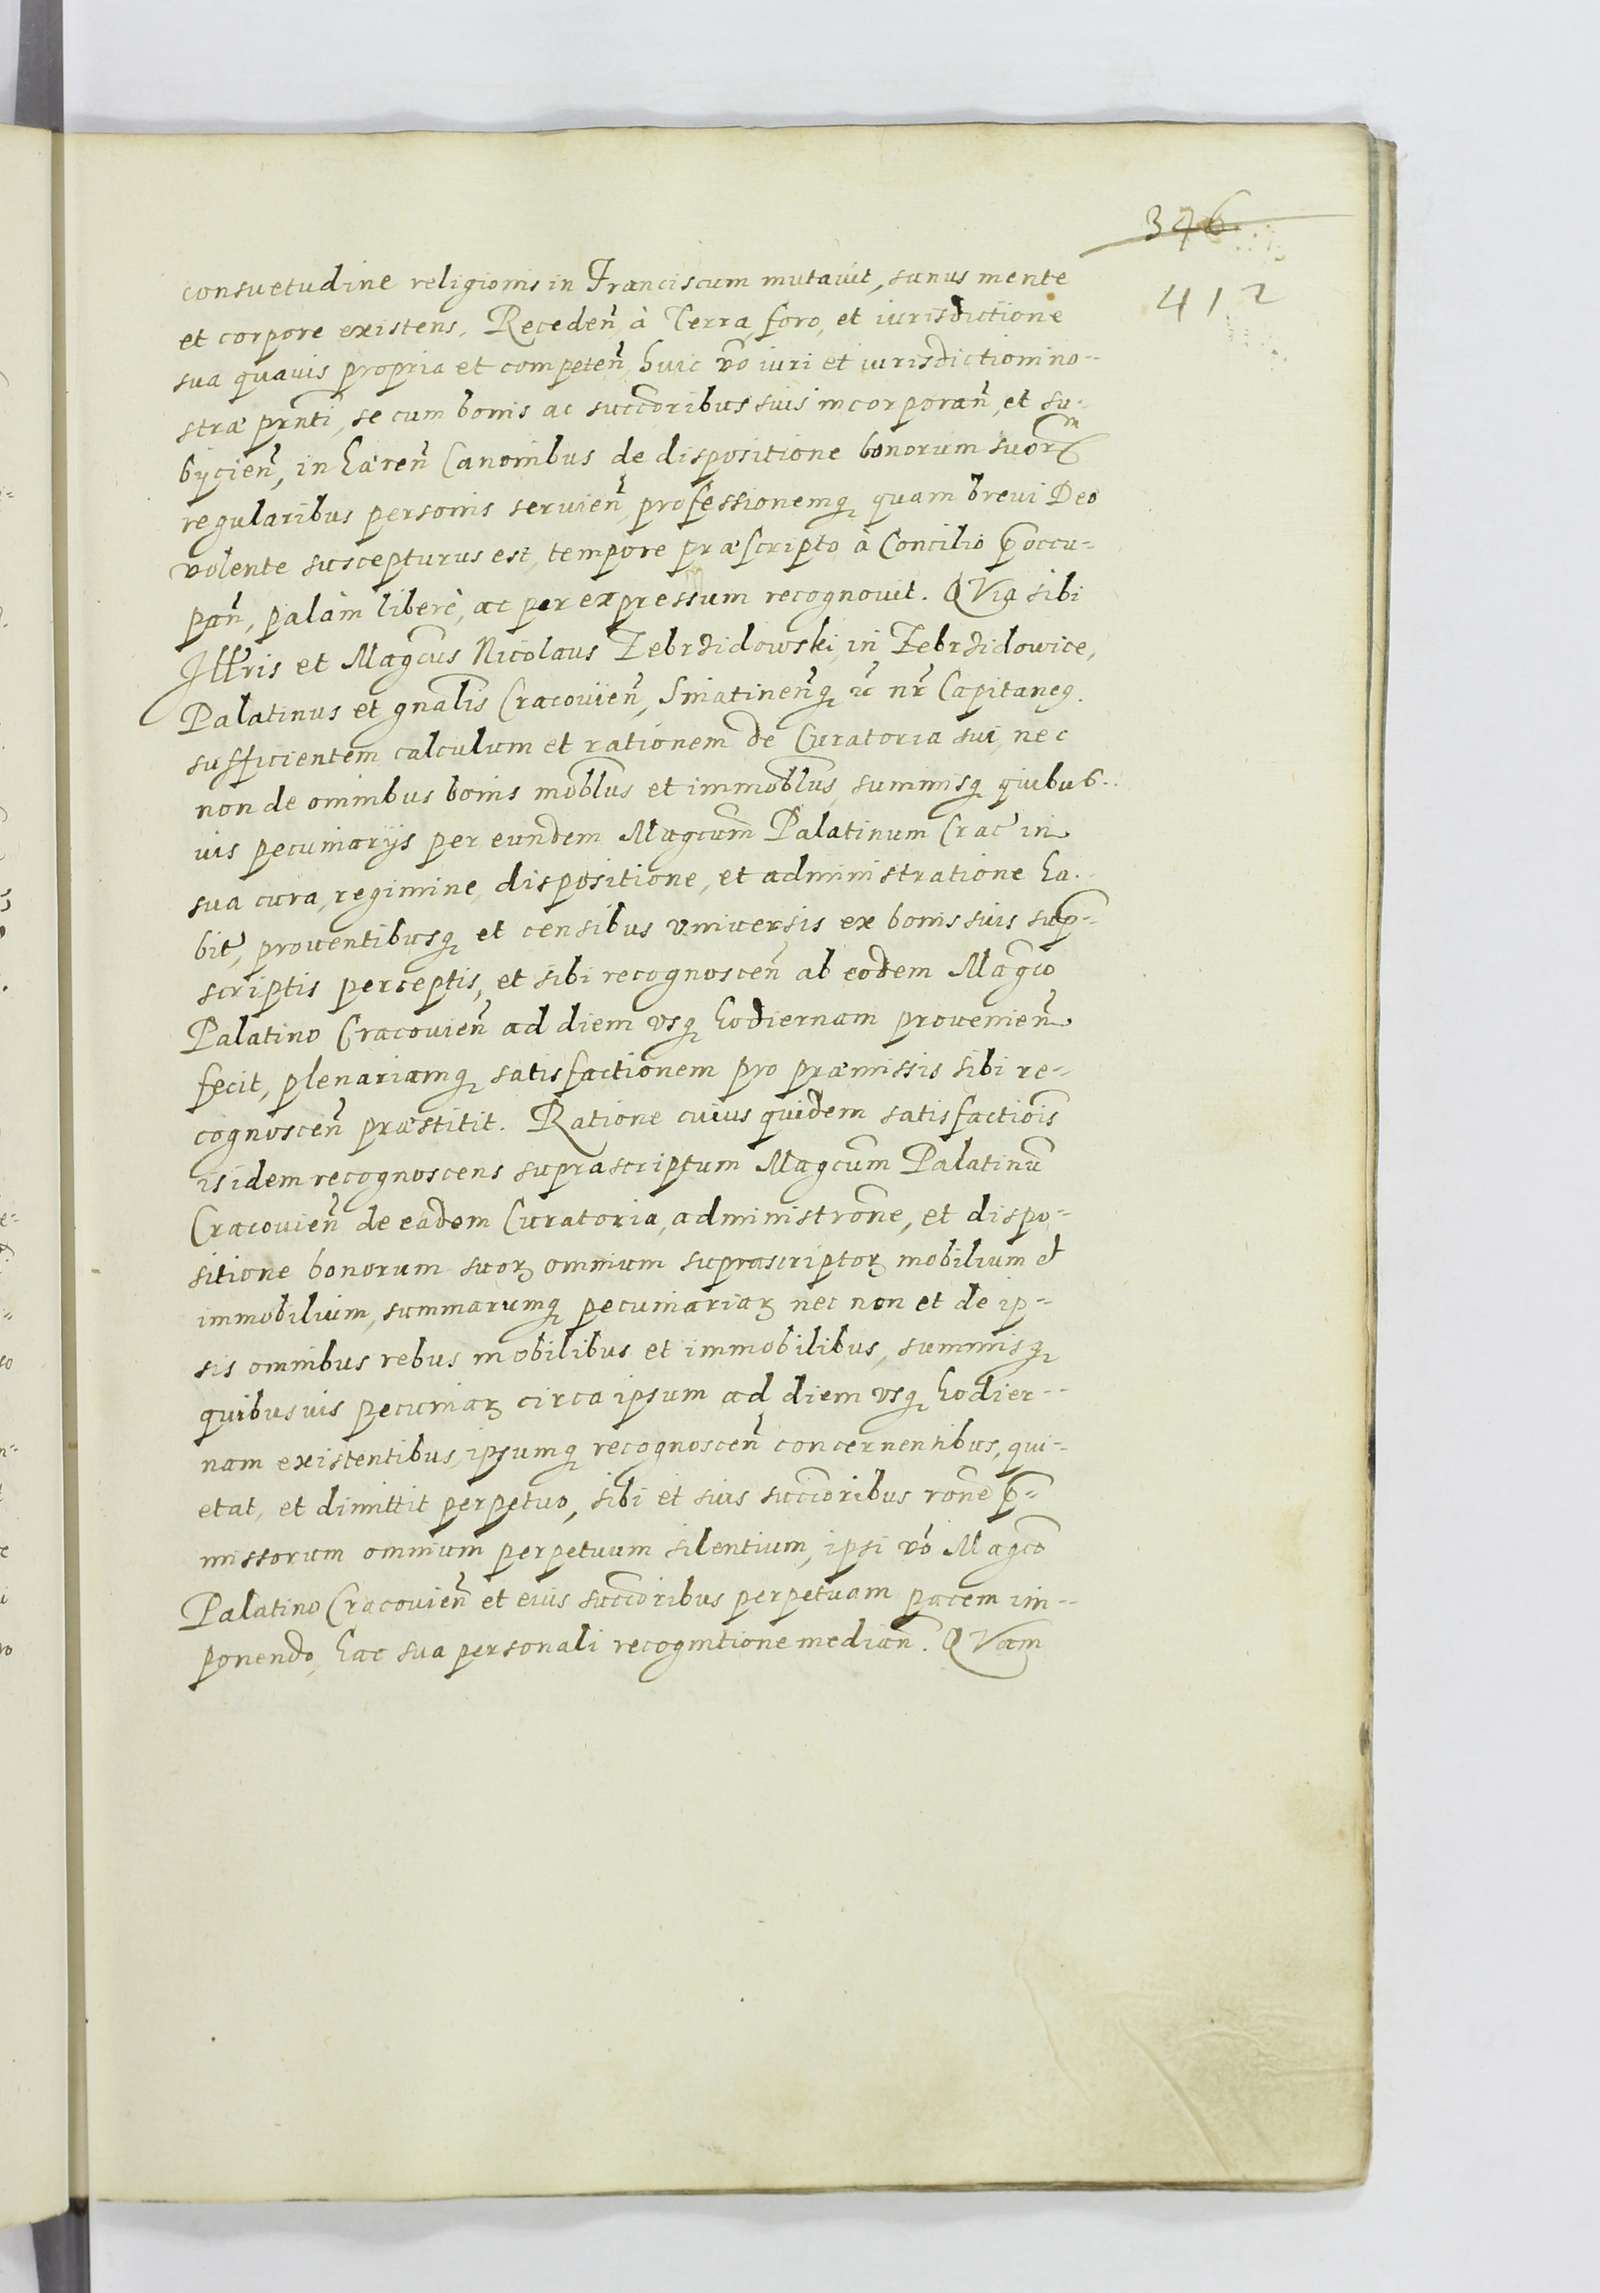 376
412
consuetudine religionis in Franciscum mutavit, sanus mente
et corpore existens. Receden̄ à Terra, foro, et iurisdictione
sua quavis propria et competen̄, huic v̄o iuri et iurisdictioni no-
stræ prn̄ti, se cum bonis ac succ̄oribus suis incorporan̄, et su-
bÿcien̄, in hæren̄ Canonibus de dispositione bonorum suorm̄
regularibus personis servien̄, professionemq quam brevi Deo
volente suscepturus est, tempore præscripto à Concilio p̄occu-
pan̄, palàm liberè, ac per expressum recognovit. QVia sibi
Illr̄is et Magc̄us Nicolaus Zebrzidowski, in Zebrzidowice,
Palatinus et gn̄alis Cracovien̄, Sniatinen̄q c̄ nr̄ Capitaneg.
sufficientem calculum et rationem de Curatoria sui, nec
non de omnibus bonis mobl̄us et immobl̄us, summisq quibus-
vis pecuniarijs per eundem Magcum̄ Palatinum Crac̄ in
sua cura, regimine, dispositione, et administratione ha-
bit̄, proventibusq et censibus universis ex bonis suis sup̄-
scriptis perceptis, et sibi recognoscen̄ ab eodem Magc̄o
Palatino Cracovien̄ ad diem usq hodiernam provenien̄
fecit, plenariamq satisfactionem pro præmissis sibi re-
cognoscen̄ præstitit. Ratione cuius quidem satisfactiois̄
is idem recognoscens suprascriptum Magcum̄ Palatinū
Cracovien̄ de eadem Curatoria, administrōne, et dispo-
sitione bonorum suoꝝ omnium suprascriptoꝝ mobilium et
immobilium, summarumq pecuniariaꝝ nec non et de ip-
sis omnibus rebus mobilibus et immobilibus, summisq
quibusvis pecuniaꝝ circa ipsum ad diem usq hodier-
nam existentibus, ipsumq recognoscen̄ concernentibus, qui-
etat, et dimittit perpetuo, sibi et suis succ̄oribus rōne p̄-
missorum omnium perpetuum silentium, ipsi v̄o Magc̄o
Palatino Cracovien̄ et eius succ̄oribus perpetuam pacem im-
ponendo, hac sua personali recognitione median̄. QVam